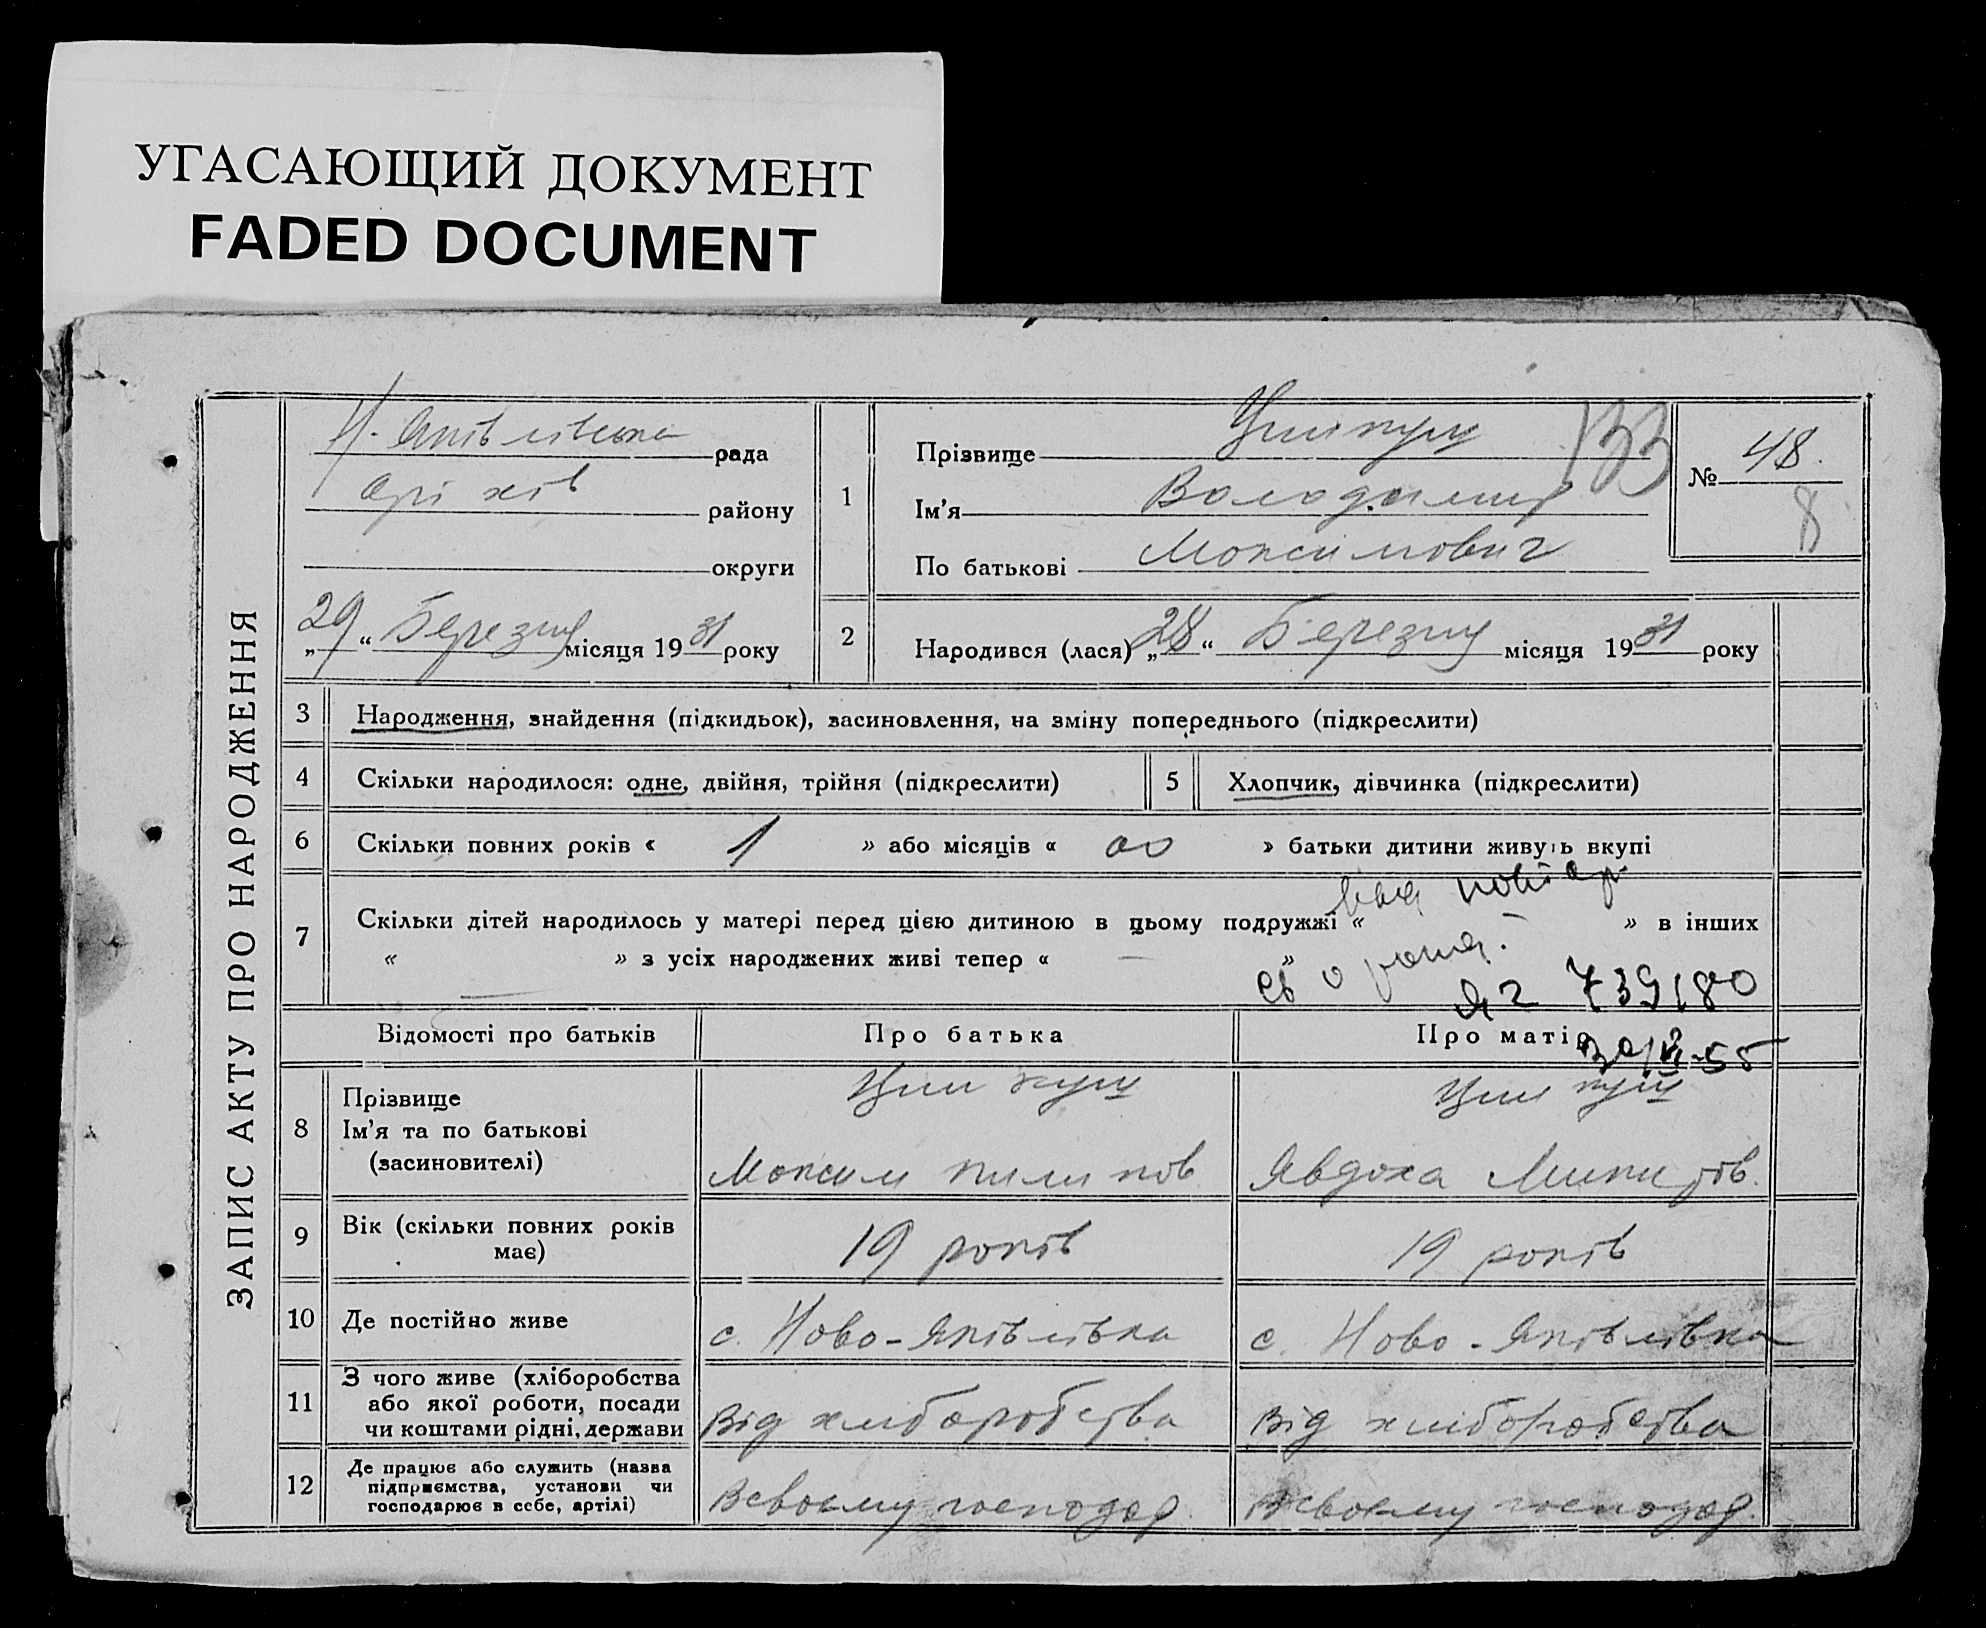 УГАСАЮЩИЙ ДОКУМЕНТ
FADED DOCUMENT
ЗАПИС АКТУ ПРО НАРОДЖЕННЯ
Н. Яківлівська рада
Оріхів району
округи
„29“ Березня місяця 1931 року
1
Прізвище
133
Ім'я Володимир
По батькові Максимович
№ 48.
8
2
Народився (лася) „28“ Березня місяця 1931 року
3 Народження, знайдення (підкидьок), засиновлення, на зміну попереднього (підкреслити)
4 Скільки народилося: одне, двійня, трійня (підкреслити)
5 Хлопчик, дівчинка (підкреслити)
6 Скільки повних років « 1 » або місяців « 00 » батьки дитини живуть вкупі
7 Скільки дітей народилось у матері перед цією дитиною в цьому подружжі « » в інших
« » з усіх народжених живі тепер « — »
повтор.
св о рожд.
739180
Відомості про батьків
Про батька
Про матір
8 Прізвище
Ім'я та по батькові
(засиновителі)
Максим Пилипов
Явдоха
9 Вік (скільки повних років має)
19 років
19 років
10 Де постійно живе
с. Ново-Яківлівка
с. Ново-Яківлівка
11 З чого живе (хліборобства
або якої роботи, посади
чи коштами рідні, держави
Від хліборобства
Від хліборобства
12 Де працює або служить (назва
підприємства, установи чи
господарює в себе, артілі)
В своєму господар.
В своєму господар.